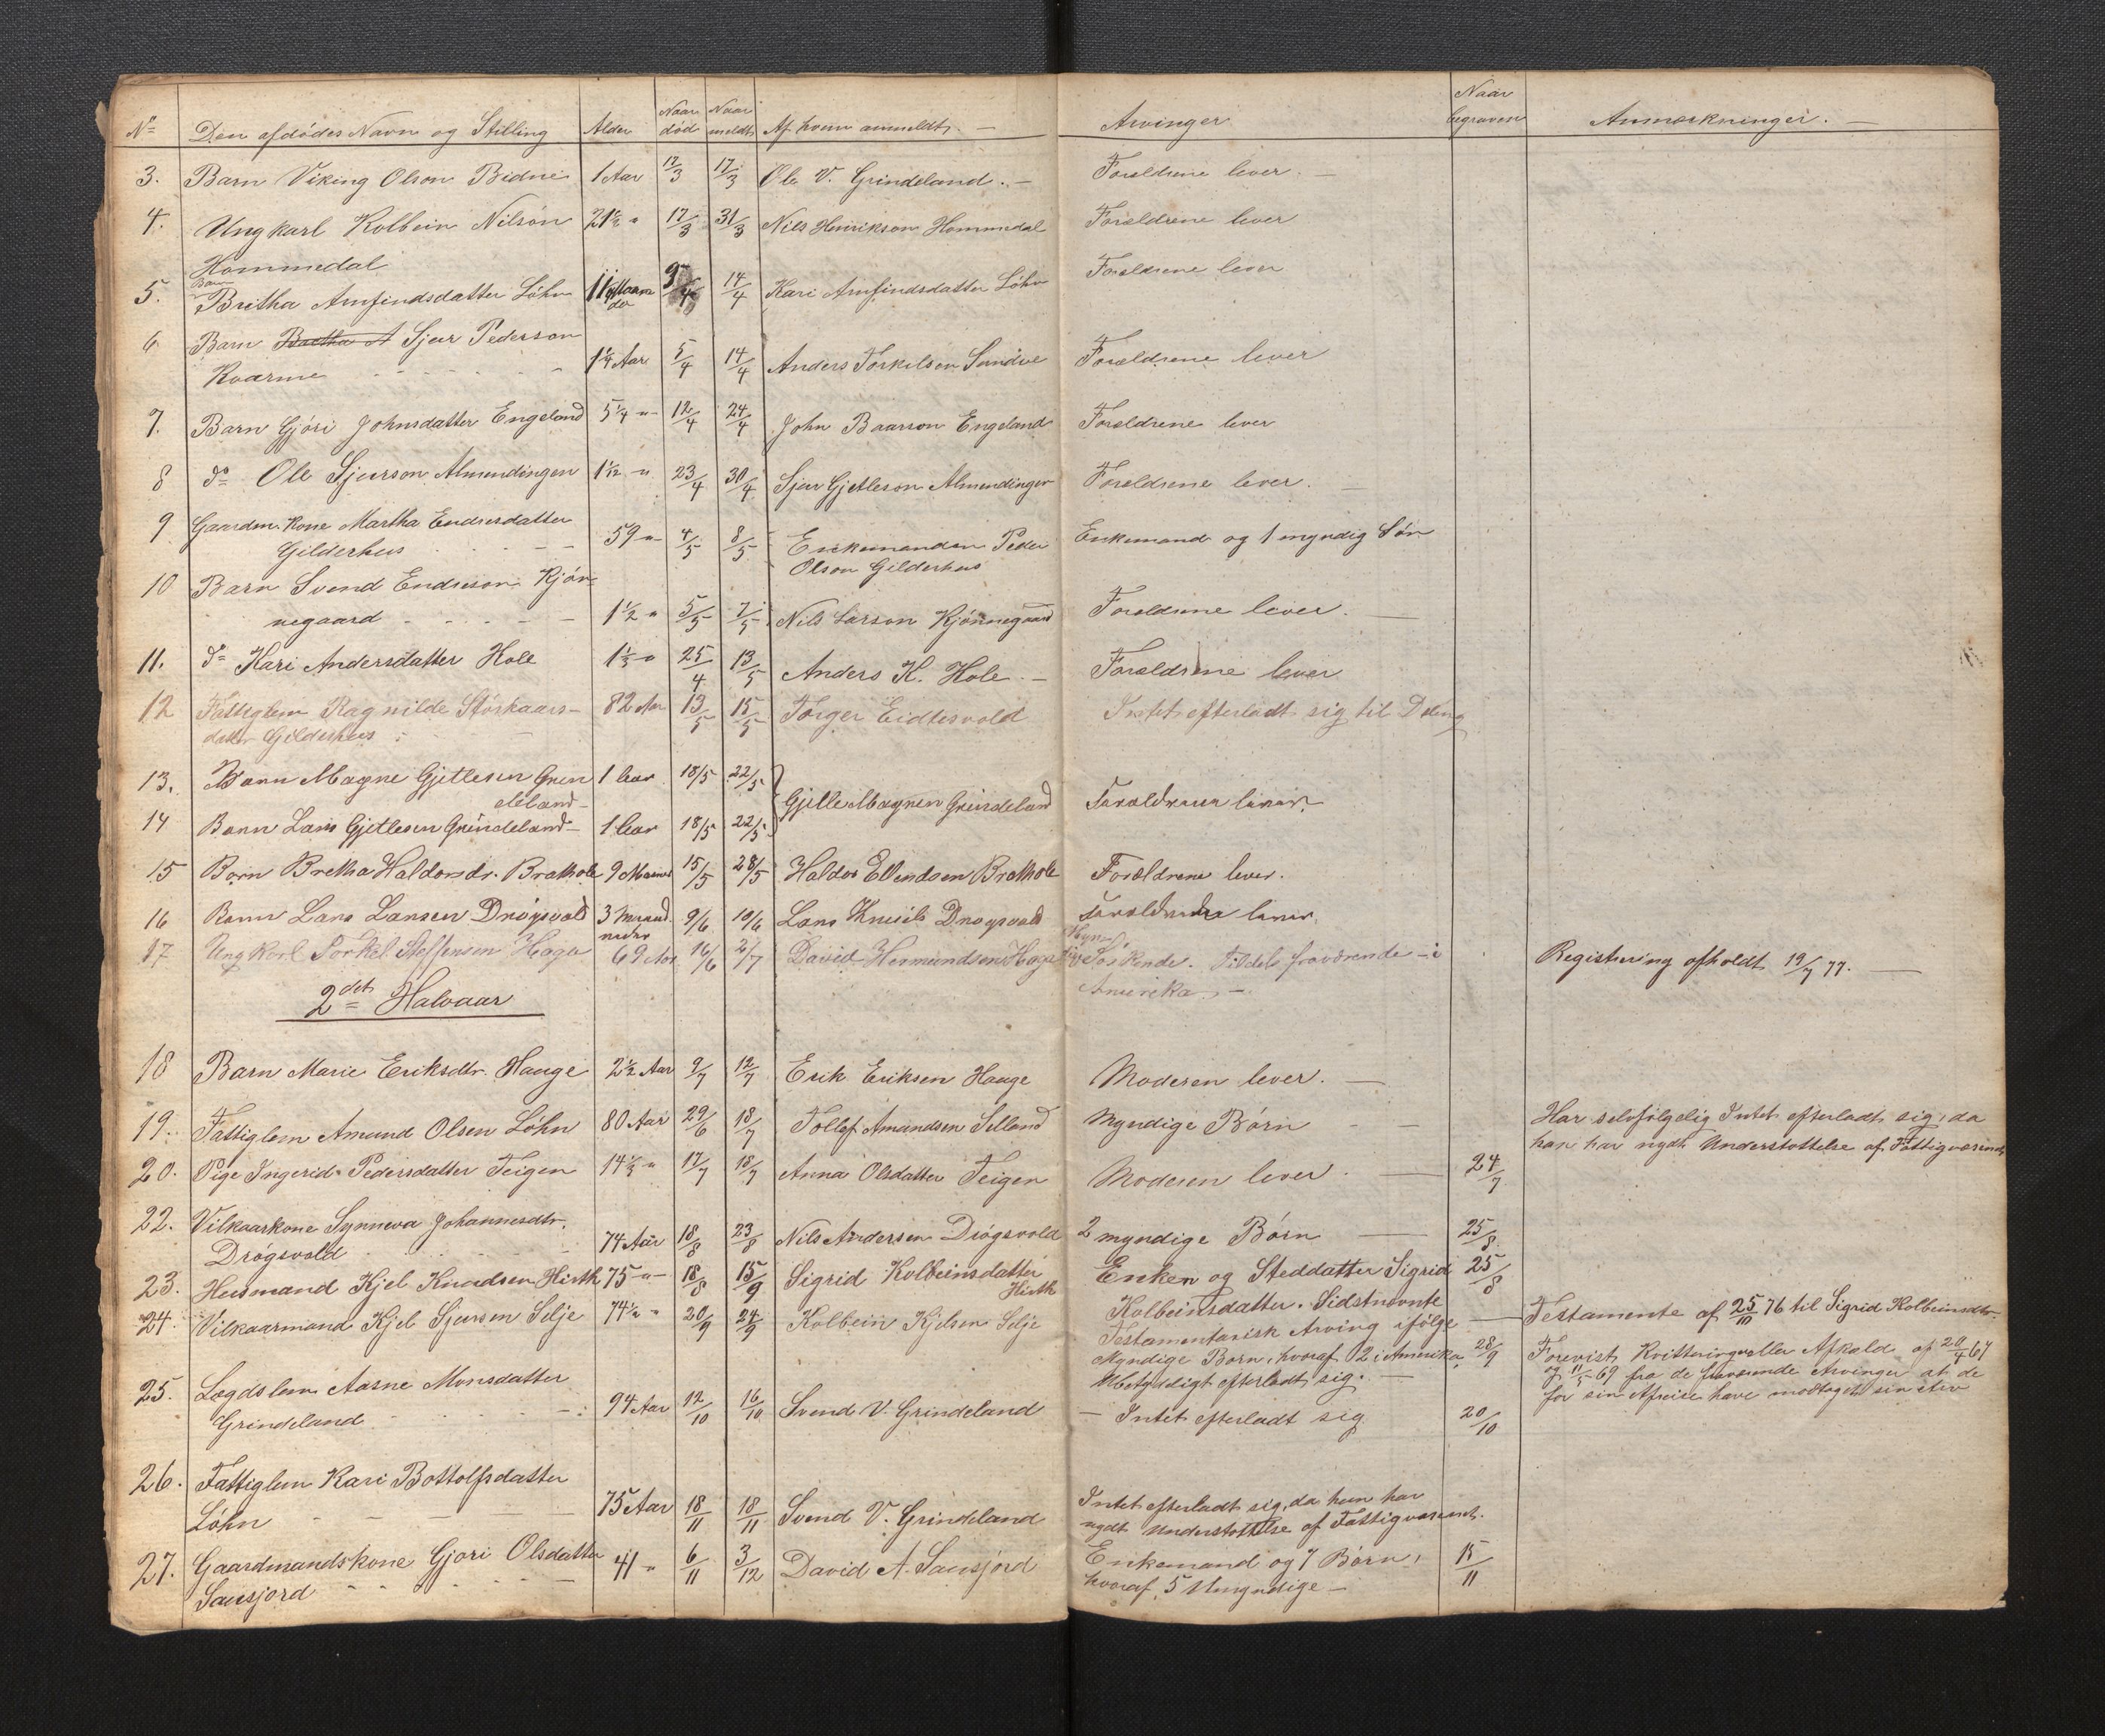 No Den afdödes Navn og Stilling Alder Naar död Naar meldt Af hvem anmeldt. — Arvinger Naar begraven Anmærkninger. —
3. Barn Viking Olson Bidne 1 Aar 12/3 17/3 Ole V. Grindeland. — Forældrene lever. —
4. Ungkarl Kolbein Nilsön 21½ " 17/3 31/3 Nils Henrikson Hommedal Forældrene lever
Hommedal
5. Barn Britha Arnfindsdatter Löhn 11 Maaneder 9/4 14/4 Kari Arnfindsdatter Löhn Forældrene lever
6 Barn Sjur Pederson
Kvarme 1¼ Aar 5/4 14/4 Anders Torkilson Sundve Forældrene lever
7. Barn Gjöri Johnsdatter Engeland 5¼ " 12/4 24/4 John Baarson Engeland Forældrene lever
8 do Ole Sjurson Almendingen 1 1/12 " 23/4 30/4 Sjur Gjetleson Almendingen Forældrene lever.
9 Gaardm. Kone Martha Endresdatter
Gilderhus 59 " 4/5 8/5 Enkemanden Peder Enkemand og 1 myndig Sön
Olson Gilderhus
10 Barn Svend Endreson Kjön=
negaard 1½ " 5/5 7/5 Nils Larson Kjönnegaard Forældrene lever.
11. do Kari Andersdatter Hole 1⅓ " 25/4 13/5 Anders K. Hole. — Forældrene lever
12 Fattiglem Ragnilde Störkaars- 82 Aar 13/5 15/5 Torger Eidtesvold Intet efterladt sig til Deling
datter Gilderhus
13. Barn Magne Gjetlesen Grin 1 Aar 18/5 22/5
deland
Gjetle Magnesen Grindeland Forældrene lever.
14 Barn Lars Gjetlesen Grindeland 1 Aar 18/5 22/5
15 Barn Bretha Haldorsdr. Brathole 9 Maaned 15/5 28/5 Haldor Ellendsen Brathole Forældrene lever.
16 Barn Lars Larsen Drögsvold 3 Maaneder 9/6 10/6 Lars Drögsvold Forældrene lever.
17 Ungkarl Torkel Steffensen Haga 69 Aar 16/6 2/7 David Hermundsen Haga Myndige Söskende. Tildels fraværende i Registrering afholdt 19/7 77. —
Amerika. —
2det Halvaar
18 Barn Marie Eriksdtr. Hauge 2½ Aar 9/7 12/7 Erik Eriksen Hauge Moderen lever. —
19. Fattiglem Amund Olsen Löhn 80 Aar 29/6 18/7 Tollef Amundsen Selland Myndige Börn Har selvfölgelig Intet efterladt sig, da
han har nydt Understöttelse af Fattigvæsenet
20. Pige Ingerid Pedersdatter Teigen 14½ " 17/7 18/7 Anna Olsdatter Teigen Moderen lever. 24/7
22. Vilkaarskone Synneva Johannesdtr.
Drögsvold 74 Aar 18/8 23/8 Nils Andersen Drögsvold 2 myndige Börn 25/8
23. Husmand Kjel Knudsen Hirth 75 " 18/8 15/9 Sigrid Kolbeinsdatter Hirth Enken og Steddatter Sigrid 25/8
Kolbeinsdatter. Sidstnevnte
Testamentarisk Arving ifölge — Testamente af 25/10 76 til Sigrid Kolbeinsdtr.
24. Vilkaarmand Kjel Sjursen Selje 74½ " 20/9 24/9 Kolbein Kjelsen Selje Myndige Börn, hvoraf 2 i Amerika, 28/9 Forevist Kvitteringer eller Afkald af 20/4 67
Ubetydeligt efterladt sig. — og 11/5 69 fra de fraværende Arvinger at de
för sin Afreise have modtaget sin Arv
25. Lægdslem Aasne Monsdatter
Grindeland 94 Aar 12/10 16/10 Svend V. Grindeland — Intet efterladt sig 20/10
26. Fattiglem Kari Bottolfsdatter
Löhn 75 Aar 18/11 18/11 Svend V. Grindeland Intet efterladt sig, da hun har
nydt Understöttelse af Fattigvæsenet.
27. Gaardmandskone Gjöri Olsdatter 41 " 6/11 3/12 David A. Sausjord Enkemand og 7 Börn, 15/11
Sausjord hvoraf 5 Umyndige —